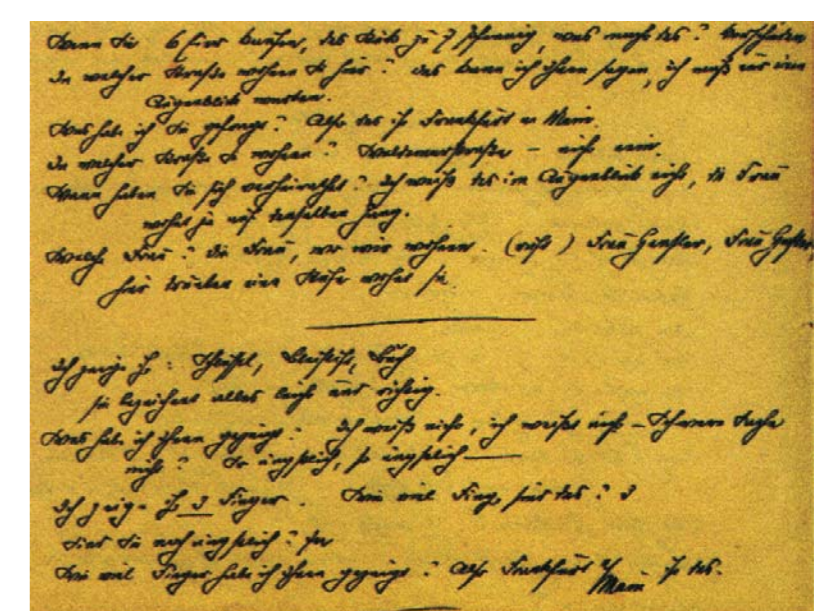 Wenn Sie 6 Eier kaufen, das Stück zu 7 Pfennig, was macht das? Verschieden
In welcher Straße wohnen Sie hier? das kann ich Ihnen sagen, ich muß nur einen
Augenblick warten.
Was hab ich Sie gefragt? Also das ist Frankfurt a Main.
In welcher Straße Sie wohnen? Waldemarstraße – nicht nein.
Wann haben Sie sich verheirathet? Ich weiß das im Augenblick nicht, die Frau
wohnt ja auf demselben Gang.
Welche Frau? die Frau, wo wir wohnen. (ruft) Frau Hensler, Frau Hensler,
hier drunten eine Stufe wohnt sie.
Ich zeige Ihr: Schlüssel, Bleistift, Buch
sie bezeichnet alles leicht und richtig.
Was hab ich Ihnen gezeigt? Ich weiß nicht, ich weiß es nicht – Schwere Sache
nicht? So ängstlich, so ängstlich
Ich zeige Ihr 3 Finger. Wie viel Fing. sind das? 3
Sind Sie noch ängstlich? Ja
Wie viel Finger hab ich Ihnen gezeigt? Also Frankfurt a/Main ist das.